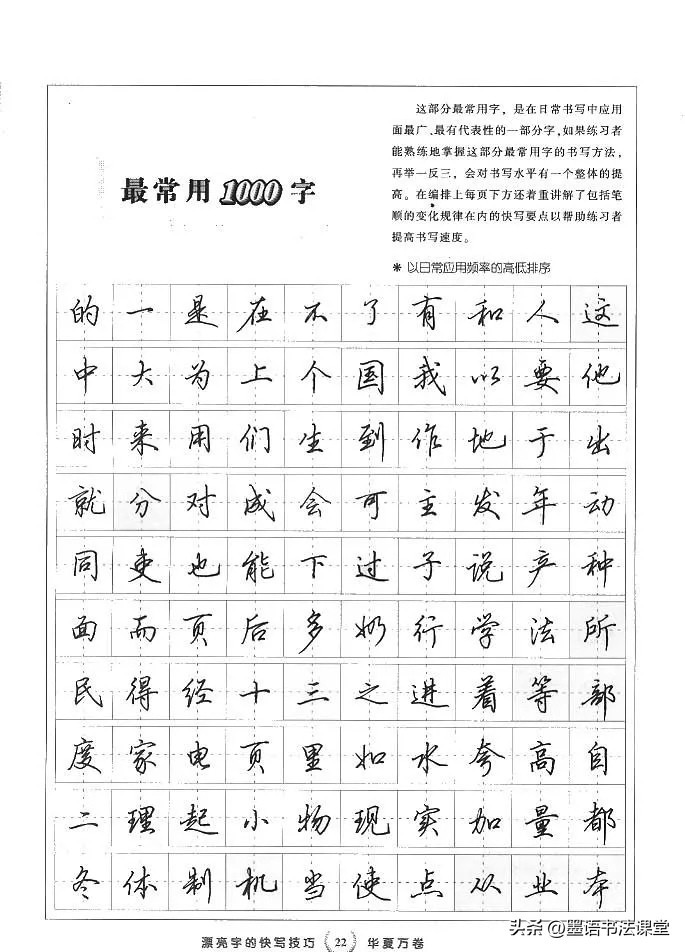 最常用1000字
这部分最常用字，是在日常书写中应用
面最广、最有代表性的一部分字，如果练习者
能熟练地掌握这部分最常用字的书写方法，
再举一反三，会对书写水平有一个整体的提
高。在编排上每页下方还着重讲解了包括笔
顺的变化规律在内的快写要点以帮助练习者
提高书写速度。
＊ 以日常应用频率的高低排序
的 一 是 在 不 了 有 和 人 这
中 大 为 上 个 国 我 以 要 他
时 来 用 们 生 到 作 地 于 出
就 分 对 成 会 可 主 发 年 动
同 吏 也 能 下 过 子 说 产 种
面 而 页 后 多 奶 行 学 法 所
民 得 经 十 三 之 进 着 等 部
度 家 电 页 里 如 水 夸 高 自
二 理 起 小 物 现 实 加 量 都
冬 体 制 机 当 使 点 从 业 本
漂亮字的快写技巧 22 华夏万卷
头条@墨语书法课堂